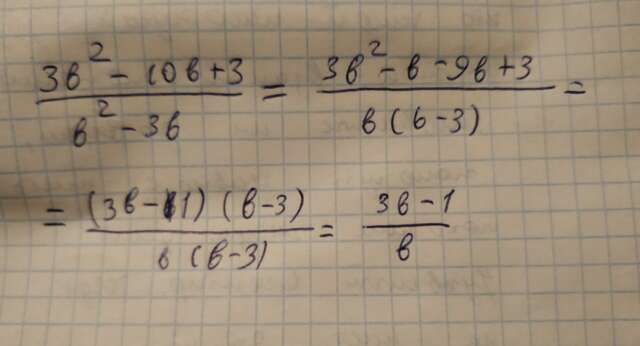 (3в² - 10в + 3)/(в² - 3в) = (3в² - в - 9в + 3)/(в(в - 3)) =
= ((3в - 1)(в - 3))/(в(в - 3)) = (3в - 1)/в